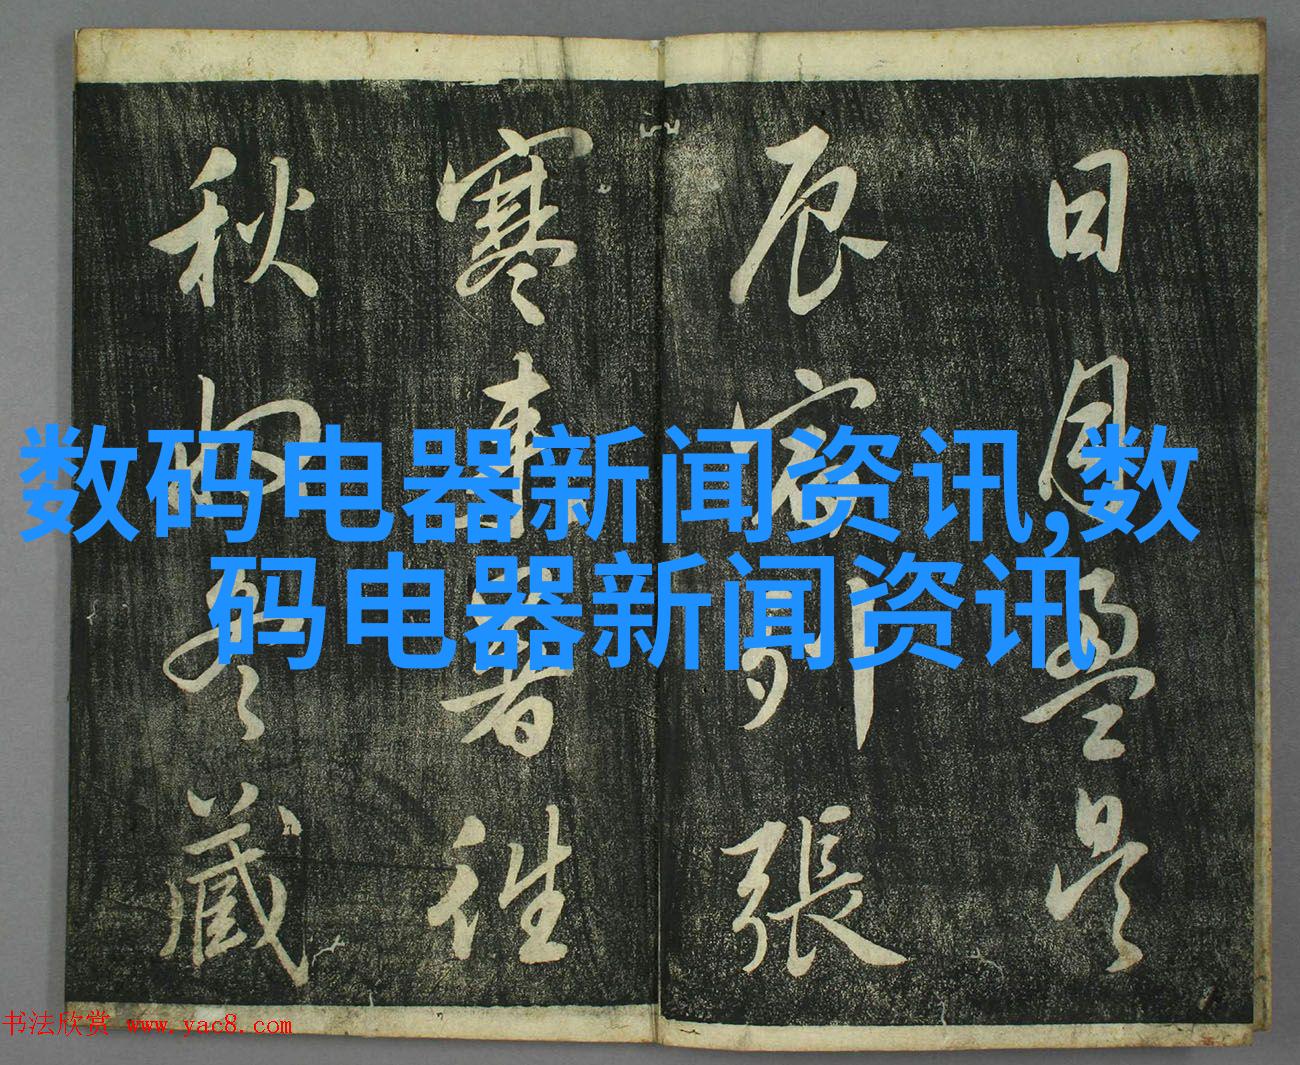 日月盈昃
辰宿列張
寒来暑往
秋收冬藏
数码电器新闻资讯,数
码电器新闻资讯
书法欣赏 www.yac8.com